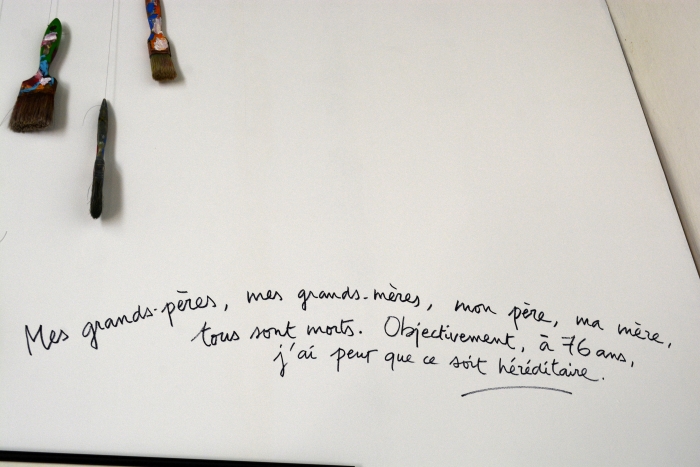 Mes grands-pères, mes grands-mères, mon père, ma mère,
tous sont morts. Objectivement, à 76 ans,
j'ai peur que ce soit héréditaire.